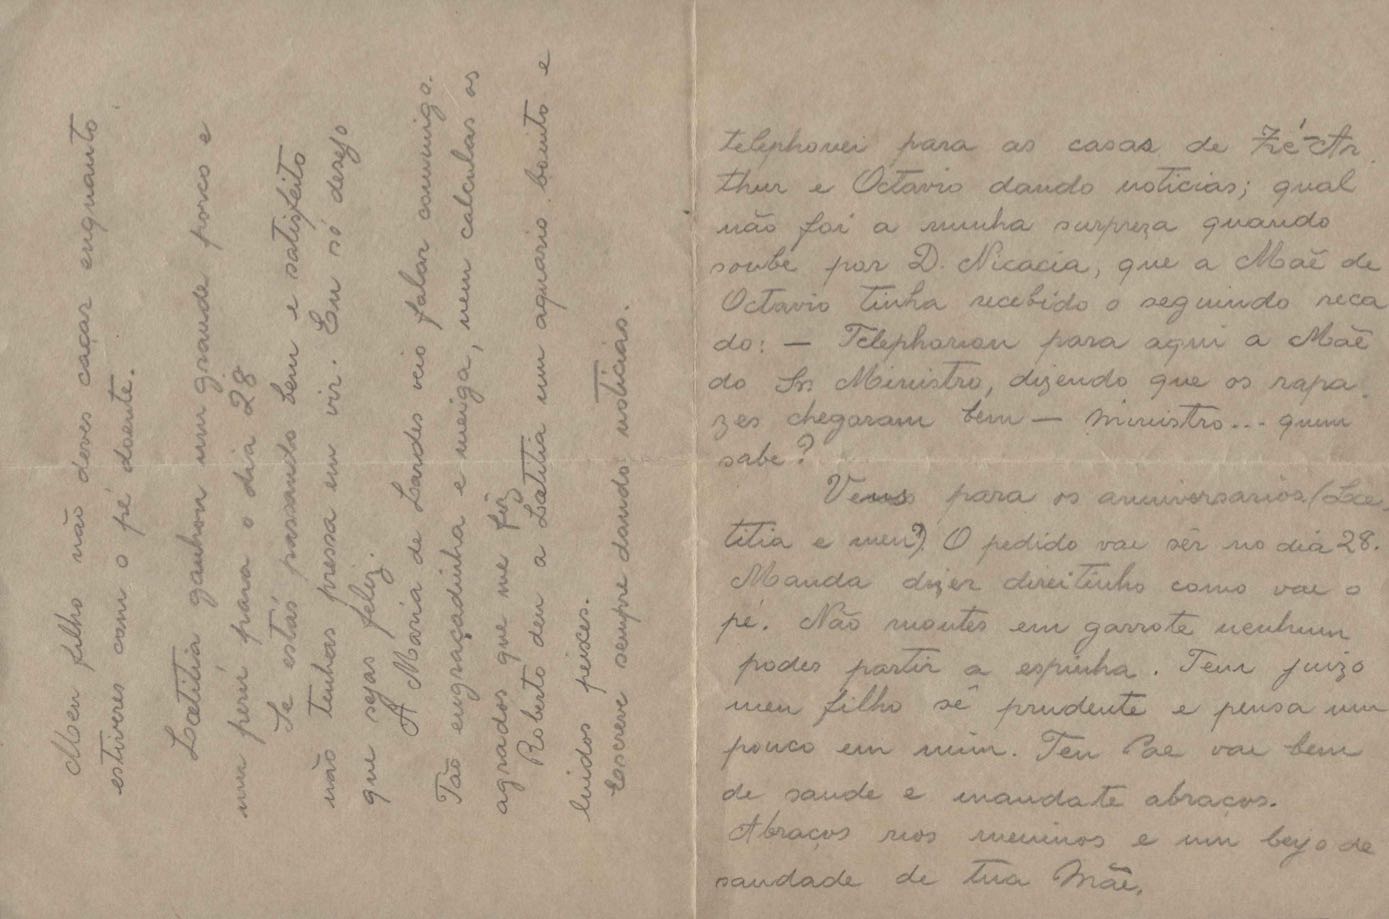 telephonei para as casas de Zé-Ar
thur e Octavio dando noticias; qual
não foi a minha surpreza quando
soube por D. Nicacia, que a Maẽ de
Octavio tinha recebido o seguindo reca
do: — Telephonou para aqui a Maẽ
do Sr. Ministro, dizendo que os rapa
zes chegaram bem — ministro... quem
sabe?
Vens para os anniversarios (Lae-
titia e meu?). O pedido vae sêr no dia 28.
Manda dizer direitinho como vae o
pé. Não montes em garrote nenhum
podes partir a espinha. Tem juizo
meu filho sê prudente e pensa um
pouco em mim. Teu Pae vae bem
de saude e manda te abraços.
Abraços nos meninos e um beijo de
saudade de tua Mãe.
Meu filho não deves caçar enquanto
estiveres com o pé doente.
Laetitia ganhou um grande porco e
um perú para o dia 28
Se estás passando bem e satisfeito
não tenhas pressa em vir. Eu só desejo
que sejas feliz.
A Maria de Lardes veio falar commigo.
Tão engraçadinha e meiga, nem calculas os
agrados que me fez
Roberto deu a Latitia um aquario bonito e
lindos peixes.
Escreve sempre dando noticias.